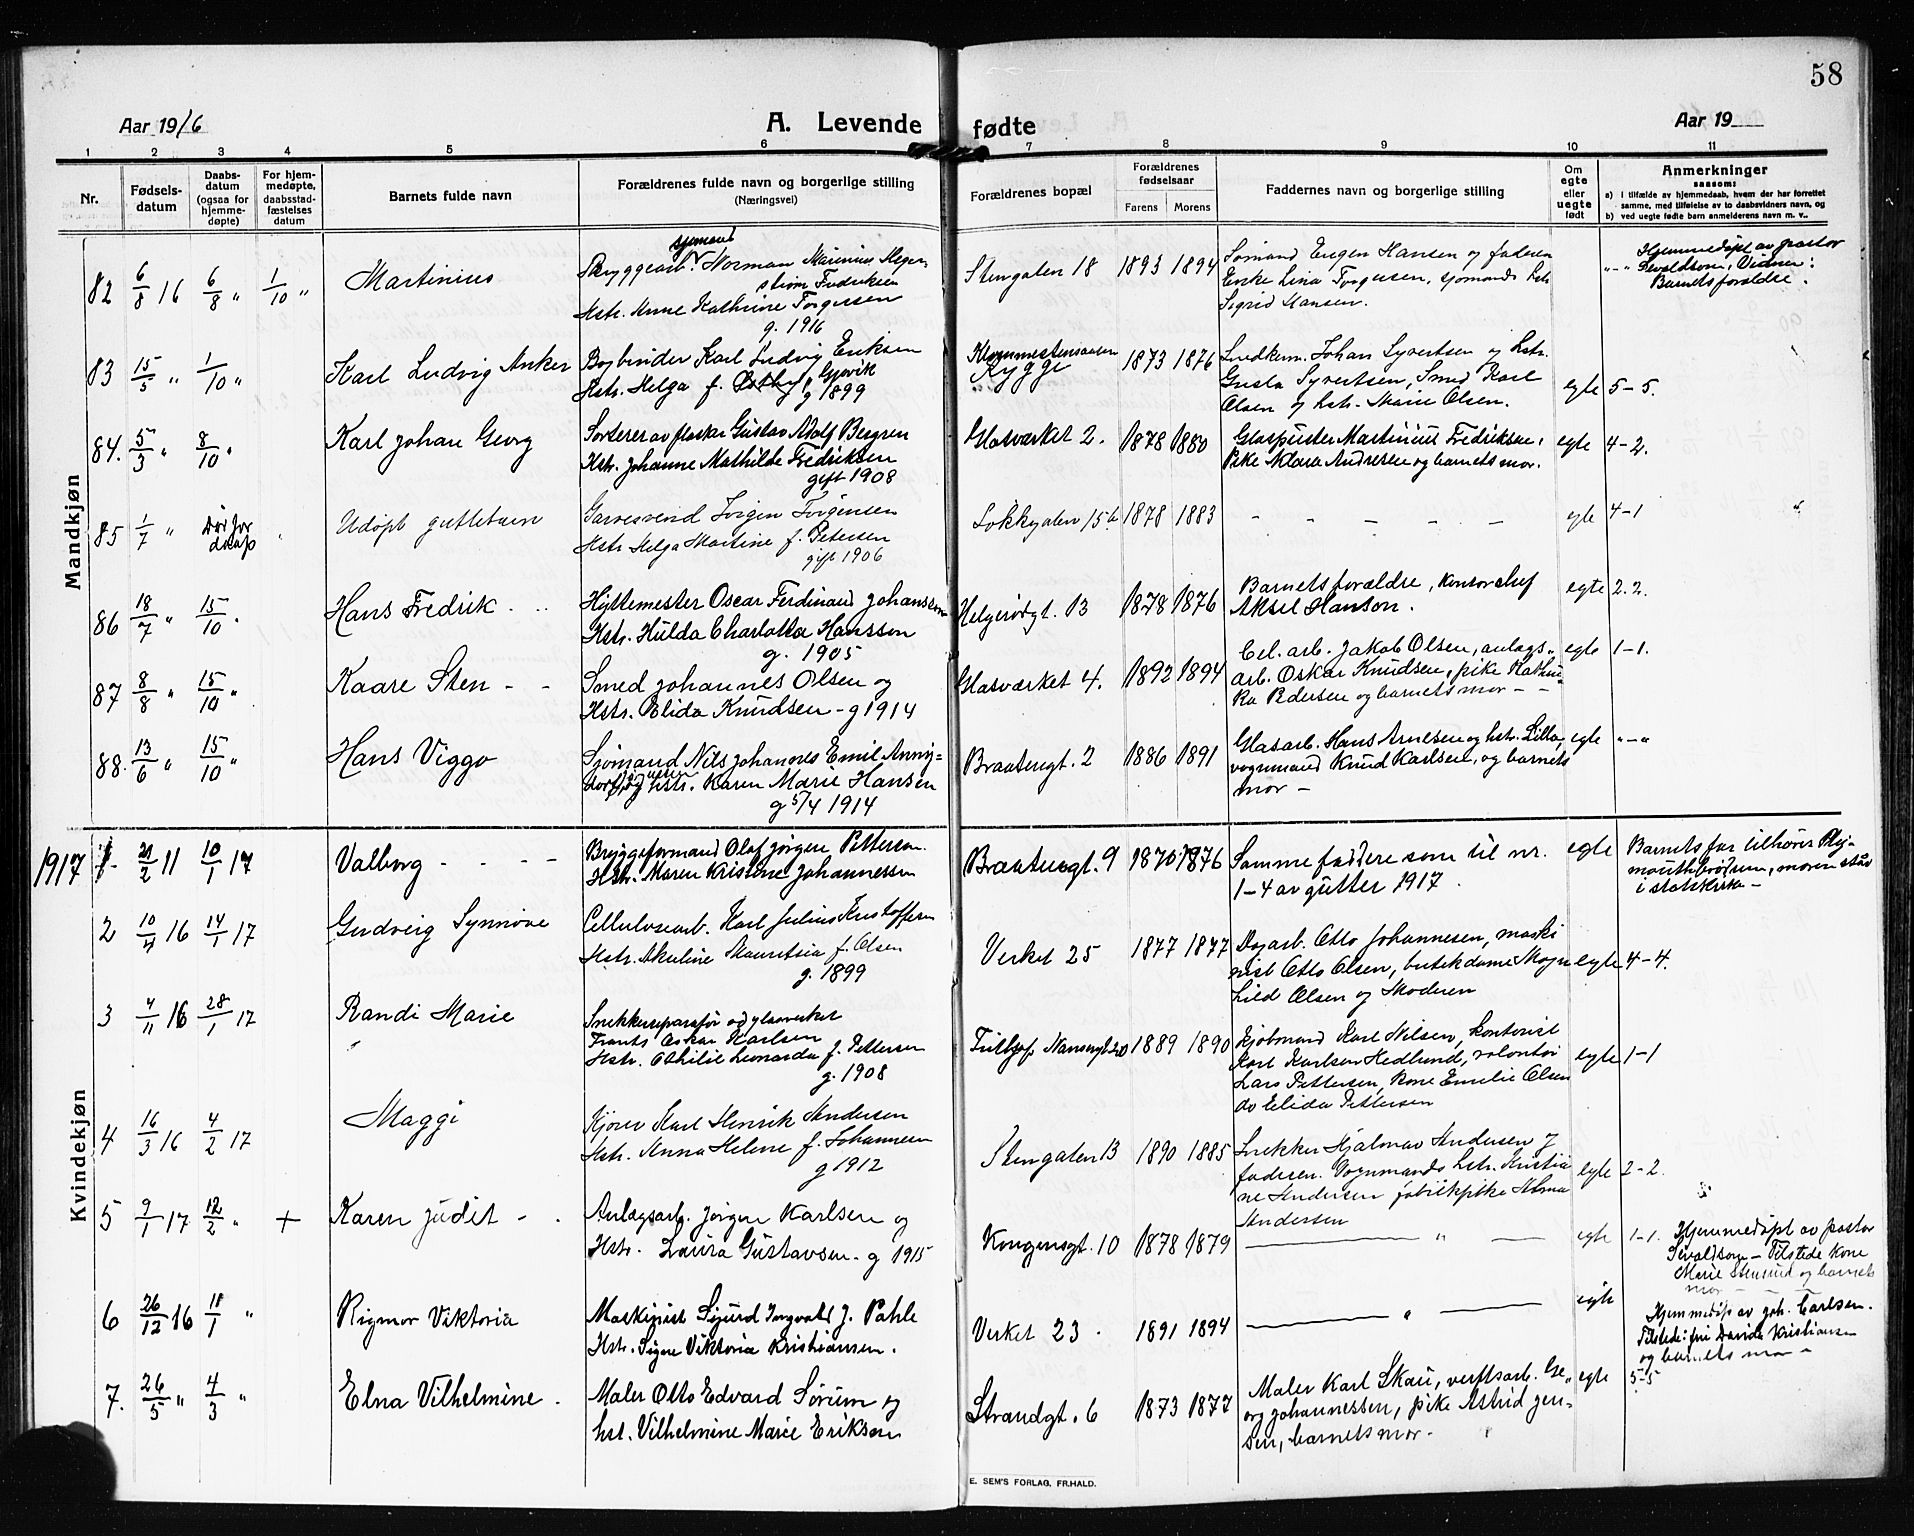 58
Aar 1916
A. Levende fødte
Aar 19
1 2 3 4 5 6 7 8 9 10 11
Nr.
Fødsels-
datum
Daabs-
datum
(ogsaa for
hjemme-
døpte)
For hjem-
medøpte,
daabsstad-
fæstelses
datum
Barnets fulde navn
Forældrenes fulde navn og borgerlige stilling
(Næringsvei)
Forældrenes bopæl
Forældrenes
fødselsaar
Farens Morens
Faddernes navn og borgerlige stilling
Om
egte
eller
uegte
født
Anmerkninger
saasom:
a) i tilfælde av hjemmedaab, hvem der har forrettet
samme, med tilføielse av to daabsvidners navn, og
b) ved uegte fødte barn anmelderens navn m. v..
Mandkjøn
82 6/8 16 6/8 " 1/10 " Martinius
sjømand
Bryggearb. Norman Marinius Heger-
strøm Fredriksen
Hstr. Anne Kathrine Torgersen
g. 1916
Stengaten 18 1893 1894
Sømand Eugen Hansen og faderen
Enke Lina Torgersen, sjømands hst.
Sigrid Hansen.
"-" Hjemmedøpt av pastor
Sevaldson, Vidner:
Barnets foræld re.
83 15/5 " 1/10 " Karl Ludvig Anker
Bogbinder Karl Ludvig Eriksen
Hstr. Helga f. Østby, Gjøvik
g 1899
Rygge 1873 1876
Snedkerm. Johan Syvertsen og hstr.
Gusta Syvertsen, Smed Karl
Olsen og hstr. Marie Olsen.
egte 5-5.
84. 5/3 " 8/10 " Karl Johan Georg
Sorterer av flasker Gustav Adolf Bergren
Hstr. Johanne Mathilde Fredriksen
gift 1908
Glasværket 2. 1878 1880
Glaspuster Martinius Fredriksen,
Pike Klara Andresen og barnets mor.
egte 4-2.
85 1/7 " Død før
daap
Udøpt guttebarn
Garversvend Jørgen Jørgensen
Hstr Helga Martine f. Petersen
gift 1906
Lokkegaten 15b 1878 1883 - - - - - egte 4-1
86 18/7 " 15/10 " Hans Fredrik - "
Hyttemester Oscar Ferdinand Johansson
Hstr. Hulda Charlotta Hansson
g. 1905
Helgerødgt. 13 1878 1876
Barnets forældre, kontorchef
Aksel Hanson.
egte 2.2.
87 8/8 " 15/10 " Kaare Sten - -
Smed Johannes Olsen og
Hstr. Elida Knudsen - g 1914
Glasværket 4. 1892 1894
Cel. arb. Jakob Olsen, anlags-
arb. Oskar Knudsen, pike Kathin-
ka Pedersen og barnets mor - -
egte 1-1.
88. 13/6 " 15/10 " Hans Viggo
Sjømand Nils Johannes Emil
og hstr. Karen Marie Hansen
g 5/4 1914
Braatengt. 2 1886 1891
Glasarb. Hans Arnesen og hst. Lilla,
vognmand Knud Karlsen, og barnets
mor -
egte "-"
Kvindekjøn
1917 1- 21/2 11 10/1 17 Valborg - - - -
Bryggeformand Olaf Jørgen Pettersen.
Hstr. Maren Kristine Johannessen
Braatengt. 9 1870 1876
Samme faddere som til nr.
1-4 av gutter 1917.
egte Barnets far tilhører Ply-
mouthbrødrene, moren staar
i statskirke -
2 10/4 16 14/1 17 Gudveig Synnøve
Cellulosearb. Karl Julius Kristoffersen
Hstr. Akuline Mauritsia f. Olsen
g. 1899
Verket 25 1877 1877
Dagarb. Otto Johannesen, maski-
nist Otto Olsen, butikdame Magn-
hild Olsen og Moderen
egte 4-4.
3 4/11 16 28/1 17 Randi Marie
Snekkerreparatør ved glasverket
Frants Oskar Karlsen
Hstr. Othilie Leonarda f. Pettersen
g. 1908
Fritjof Nansensgt. 20 1889 1890
Kjøbmand Karl Nilsen, kontorist
Karl Karlsen Hedlund, volontør
Lars Pettersen, kone Emelie Olsen
do Elida Pettersen
egte 1-1
4 16/3 16 4/2 17 Maggi
Kjører Karl Henrik Andersen
Hstr. Anna Helene f. Johannesen
g 1912
Stengaten 13 1890 1885
Snekker Hjalmar Andersen og
faderen. Vognmands hstr. Kristia-
ne Andersen fabrikpike Alma
Andersen
egte 2-2.
5 9/1 17 12/2 " + Karen Judit - -
Anlagsarb. Jørgen Karlsen og
Hstr. Laura Gustavsen - g 1915
Kongensgt. 10 1878 1879 — " — egte 1-1.
Hjemmedøpt av pastor
Sevaldson - Tilstede kone
Marie Stensrud og barnets
mor - - -
6 26/12 16 11/1 " Rigmor Viktoria
Maskinist Sigurd Ingvald J. Pahle
Hstr. Signe Viktoria Kristiansen.
Verket 23. 1891 1894 — " — egte
Hjemmedøp av Joh. Carlsen.
Tilstede: fru Davida Kristiansen
og barnets mor -
7. 26/5 " 4/3 " Elna Vilhelmine -
Maler Otto Edvard Sørum og
hst. Vilhelmine Marie Eriksen
Strandgt. 6 1873 1877
Maler Karl Skau, verftsarb. Ge-
org Johannessen, pike Astrid Jen-
sen, barnets mor.
egte 5-5
E. SEM'S FORLAG, FR.HALD.